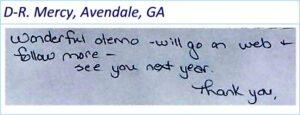 D-R. Mercy, Avendale, GA
Wonderful demo - will go on web +
follow more -
see you next year.
Thank you,